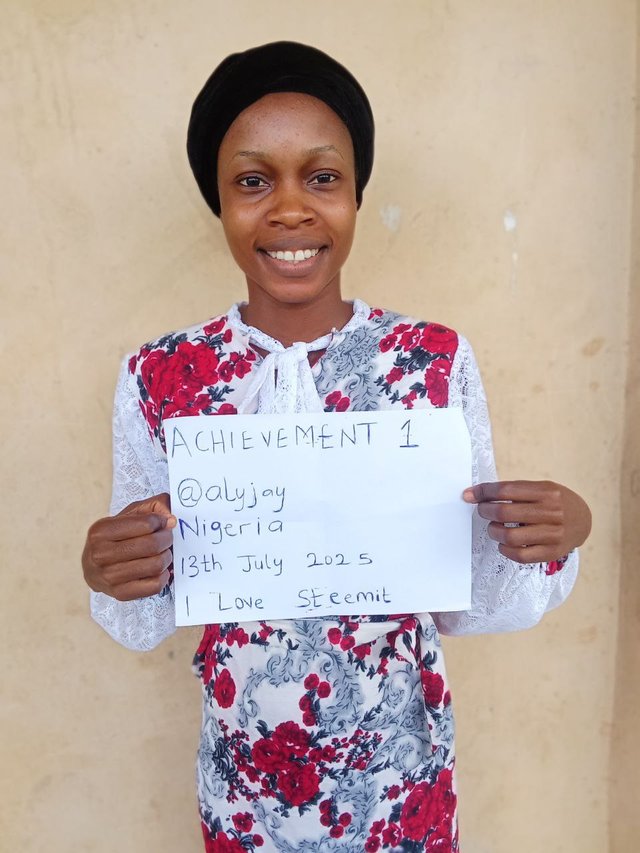 ACHIEVEMENT 1
@alyjay
Nigeria
13th July 2025
I Love SEeemit